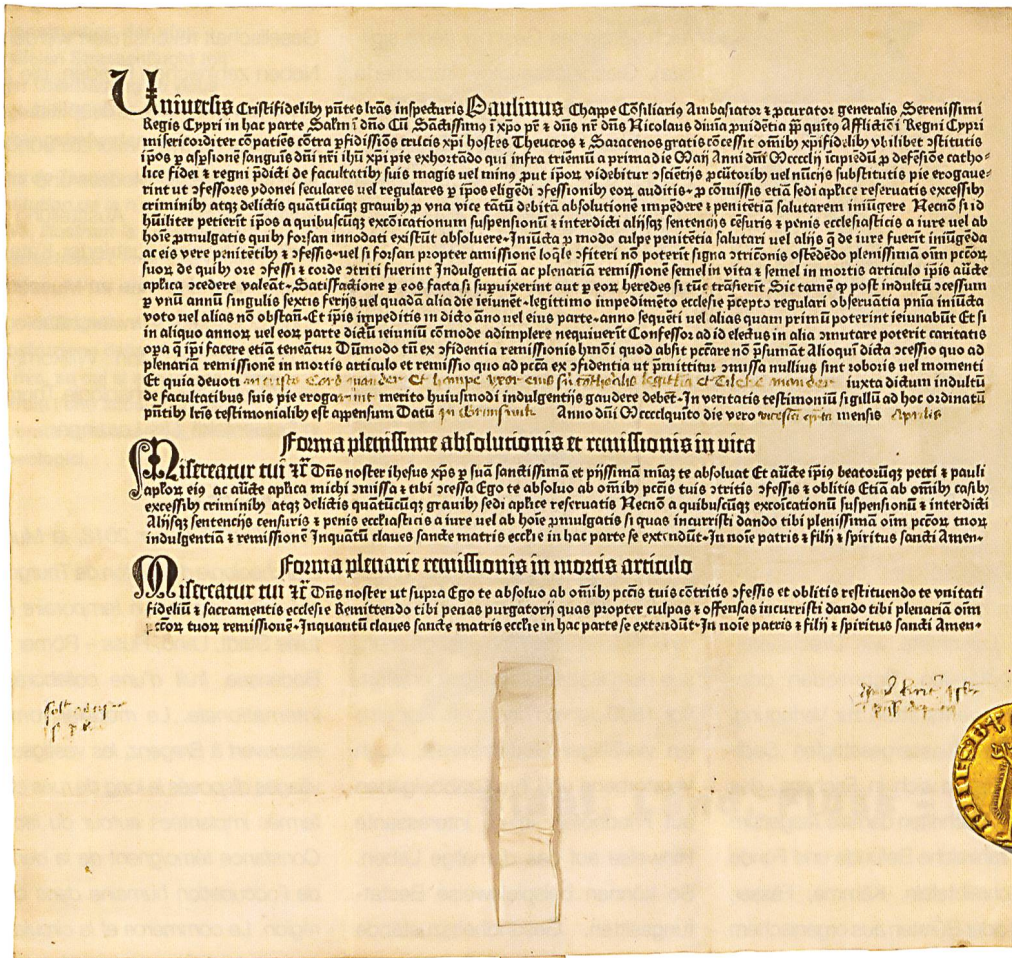 Uniuersis Cristifidelibꝫ pñtes lr̃as inspecturis Paulinus Chappe Cõsiliariꝰ Ambasiator ⁊ ꝓcurator generalis Serenissimi
Regis Cypri in hac parte Salm̃ ĩ dño Cũ Sãctissimꝰ ĩ xp̃o pr̃ ⁊ dñs nr̃ dñs Nicolaus diuĩa ꝓuidẽtia pp̃ quĩtꝰ Afflictiõi Regni Cypri
misericorditer cõpatiẽs cõtra ꝑfidissiões crucis xp̃i hostes Theucros ⁊ Saracenos gratis cõcessit om̃ibꝫ xp̃ifidelibꝫ vbilibet ↄstitutis
ip̃os ꝑ asꝑsionẽ sanguĩs dñi nr̃i ihũ xp̃i pie exhortãdo qui infra triẽniũ a prima die Maij Anni dñi Mcccclij ĩcipiẽdũ ꝓ defẽsiõe catho-
lice fidei ⁊ regni p̃dicti de facultatibꝫ suis magis vel minꝰ ꝓut ip̃oꝝ videbitur ↄsciẽtijs ꝓcũtoribꝫ vel nũcijs substitutis pie erogaue-
rint ut ↄfessores ydonei seculares vel regulares ꝑ ip̃os eligẽdi ↄfessionibꝫ eoꝝ auditis · ꝓ cõmissis etiã sedi aplice reseruatis excessibꝫ
criminibꝫ atqꝫ delictis quãtũcũqꝫ grauibꝫ ꝓ vna vice tãtũ debitã absolutionẽ impẽdere ⁊ penitẽtiã salutarem iniũgere Necnõ si id
hũiliter petierĩt ip̃os a quibuscũqꝫ excõicationum suspensionũ ⁊ interdicti alijsqꝫ sentencijs cẽsuris ⁊ penis ecclesiasticis a iure vel ab
hoĩe ꝓmulgatis quibꝫ forsan innodati existũt absoluere · Iniũcta ꝓ modo culpe penitẽtia salutari vel alijs q̃ de iure fuerĩt iniũgẽda
ac eis vere penitẽtibꝫ ⁊ ↄfessis · vel si forsan propter amissionẽ loq̃le ↄfiteri nõ poterĩt signa ↄtriciõnis ostẽdẽdo plenissimã oĩm pcc̃oꝝ
suoꝝ de quibꝫ ore ↄfessi ⁊ corde ↄtriti fuerint Indulgentiã ac plenariã remissionẽ semel in vita ⁊ semel in mortis articulo ip̃is aũcte
aplica ↄcedere valeãt · Satisfactione ꝑ eos facta si suꝑuixerĩt aut ꝑ eoꝝ heredes si tũc trãsierĩt Sic tamẽ ꝙ post indultũ ↄcessum
ꝑ vnũ annũ singulis sextis ferijs vel quadã alia die ieiunẽt · legittimo impedimẽto ecclesie p̃cepto regulari obseruãtia pñĩa iniũcta
voto vel alias nõ obstañ · Et ip̃is impeditis in dicto ãno vel eius parte · anno seq̃uẽti vel alias quam primũ poterint ieiunabũt Et si
in aliquo annoꝝ vel eoꝝ parte dictũ ieiuniũ cõmode adimplere nequiuerĩt Confessor ad id electus in alia ↄmutare poterit caritatis
oꝑa q̃ ip̃i facere etiã teneãtur Dũmodo tñ ex ↄfidentia remissionis hm̃õi quod absit peccare nõ p̃sumãt Alioqui dicta ↄcessio quo ad
plenariam remissionẽ in mortis articulo et remissio quo ad pcc̃a ex ↄfidentia ut p̃mittitur ↄmissa nullius sint roboris vel momenti
Et quia deuoti in cristo Cord mander Et hempe vxor eius legittĩa et Tilche mander iuxta dictum indultũ
de facultatibus suis pie erogarunt merito huiusmodi indulgentijs gaudere debẽt · In veritatis testimoniũ sigillũ ad hoc ordinatũ
pñtibꝫ lr̃is testimonialibꝫ est appensum Datũ in brunswik Anno dñi Mccccl quĩto die vero vicesĩa mensis Aprilis
Forma plenissime absolutionis et remissionis in vita
Misereatur tui ⁊c̃ Dñs noster ihesus xp̃s ꝑ suã sanctissimã et pijssimã mĩaꝫ te absoluat Et aũcte ip̃iꝰ beatorũqꝫ petri ⁊ pauli
apl̃oꝝ eiꝰ ac aũcte aplica michi ↄmissa ⁊ tibi ↄcessa Ego te absoluo ab om̃ibꝫ pcc̃is tuis ↄtritis ↄfessis ⁊ oblitis Etiã ab om̃ibꝫ casibꝫ
excessibꝫ criminibꝫ atqꝫ delictis quãtũcũqꝫ grauibꝫ sedi aplice reseruatis Necnõ a quibuscũqꝫ excõicationũ suspensionũ ⁊ interdicti
Alijsqꝫ sentencijs censuris ⁊ penis ecclesiasticis a iure vel ab hoĩe ꝓmulgatis si quas incurristi dando tibi plenissimã oĩm pcc̃oꝝ tuoꝝ
indulgentiã ⁊ remissionẽ Inquãtũ claues sancte matris eccl̃ie in hac parte se extendũt · In noĩe patris ⁊ filij ⁊ spiritus sancti Amen ·
Forma plenarie remissionis in mortis articulo
Misereatur tui ⁊c̃ Dñs noster ut supra Ego te absoluo ab om̃ibꝫ pcc̃is tuis cõtritis ↄfessis et oblitis restituendo te vnitati
fideliũ ⁊ sacramentis ecclesie Remittendo tibi penas purgatorij quas propter culpas ⁊ offensas incurristi dando tibi plenariã oĩm
pcc̃oꝝ tuoꝝ remissionẽ · Inquantũ claues sancte matris eccl̃ie in hac parte se extendũt · In noĩe patris ⁊ filij ⁊ spiritus sancti Amen ·